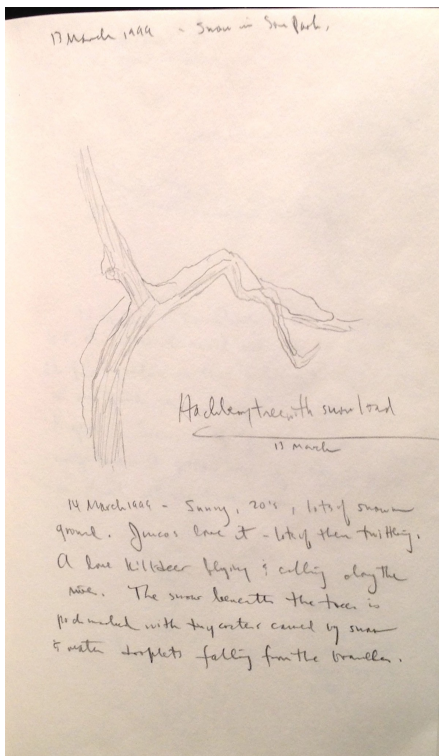 13 March 1999 - Snow in Park.
Hackberry tree with snow load
13 March
14 March 1999 - Sunny, 20's, lots of snow on
ground. Juncos love it - lots of them twittling.
A lone killdeer flying & calling along the
The snow beneath the trees is
with tiny craters caused by snow
& water droplets falling from the branches.